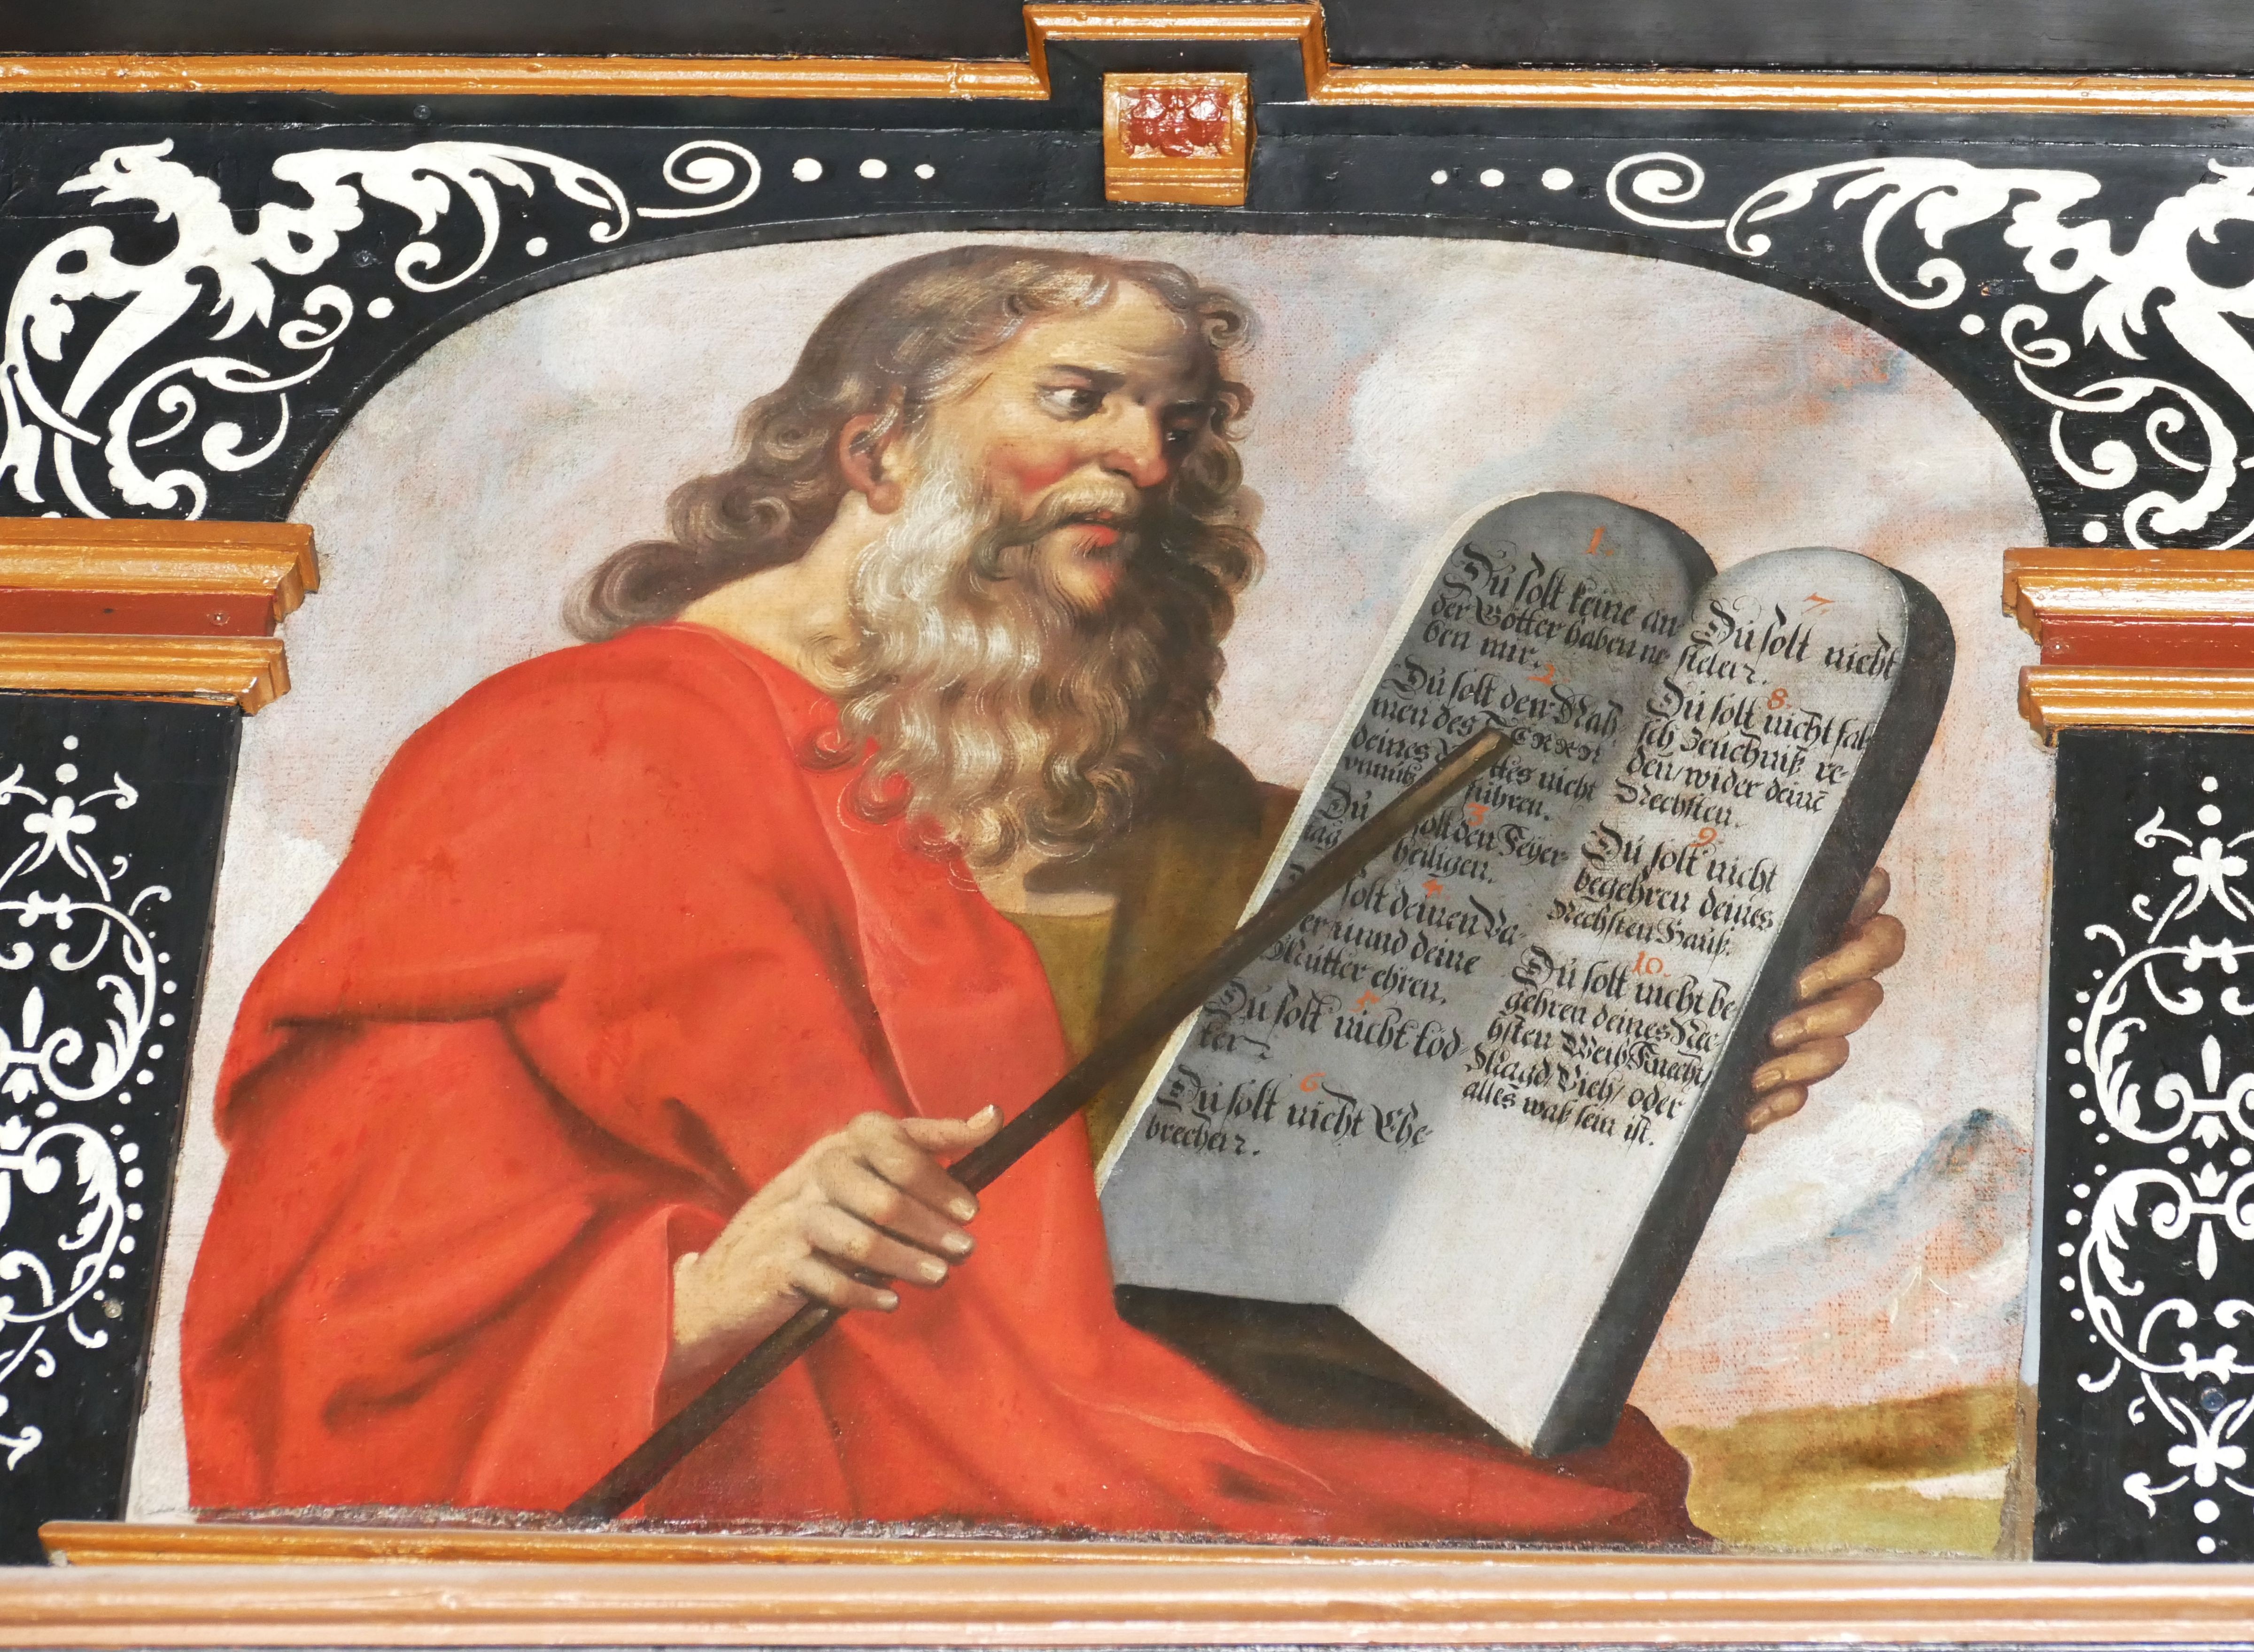 1.
Du solt keine an
der Götter haben ne
ben mir.
2.
Du solt den Nah
men des HERRN
deines Gottes nicht
unnütz führen.
3
Du solt den Feyer
tag heiligen.
4
solt deinen Va-
er unnd deine
Mutter ehren.
5
Du solt nicht töd
ten
6
Du solt nicht Ehe
brechen.
7.
Du solt nicht
stelen.
8.
Du solt nicht fal
sch Zeuchniß re-
den/wider deinē
Nechsten.
9
Du solt nicht
begehren deines
Nechsten Hauß.
10.
Du solt nicht be
gehren deines Nec
hsten Weib/Knecht/
Magd/Vieh/oder
alles waß sein ist.